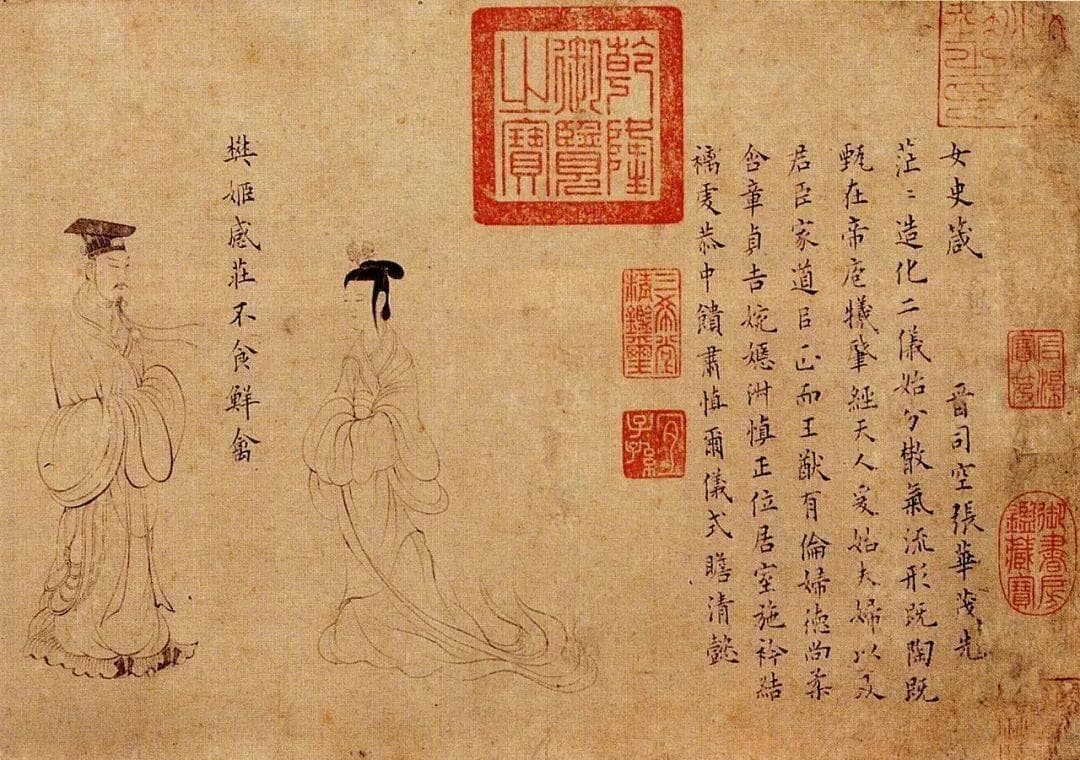 女史箴 晉司空張華茂先
茫〻造化二儀始分散氣流形既陶既
甄在帝庖犧肇經天人爰始夫婦以及
君臣家道㠯正而王猷有倫婦德尚柔
含章貞吉婉嫕淑慎正位居室施衿結
褵虔恭中饋肅慎爾儀式瞻清懿
樊姬感莊不食鮮禽
乾隆御覽之寶
三希堂精鑑璽
宜子孫
石渠寶笈
御書房鑑藏寶